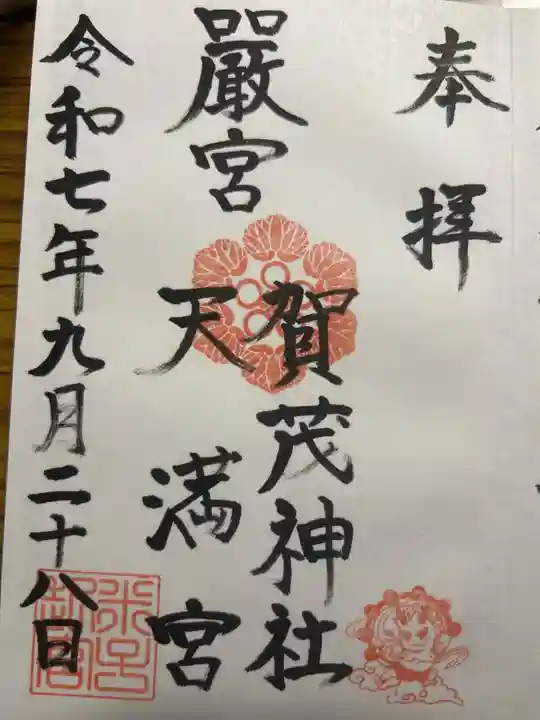 奉拝
嚴宮
賀茂神社
天満宮
令和七年九月二十八日